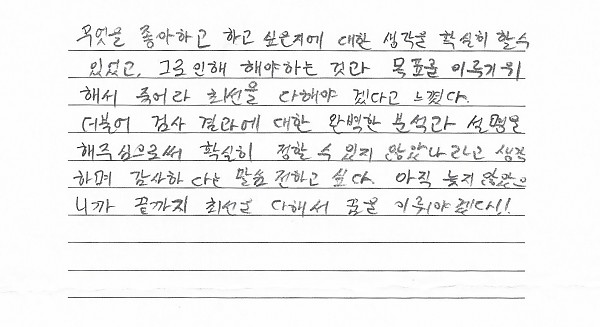 무엇을 좋아하고 하고 싶은지에 대한 생각을 확실히 할수
있었고, 그로인해 해야하는 것과 목표를 이루기위
해서 죽어라 최선을 다해야 겠다고 느꼈다.
더불어 검사 결과에 대한 완벽한 분석과 설명을
해주심으로써 확실히 정할 수 있지 않았나 라고 생각
하며 감사하다는 말씀 전하고 싶다. 아직 늦지 않았으
니까 끝까지 최선을 다해서 꿈을 이뤄야겠다!!